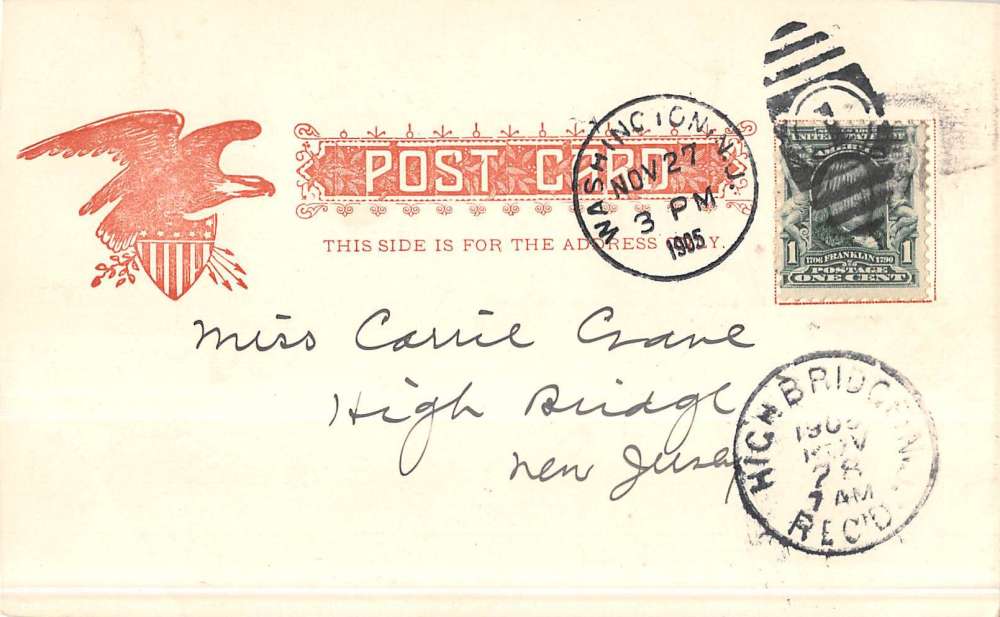 POST CARD
THIS SIDE IS FOR THE ADDRESS ONLY.
WASHINGTON, N.J.
NOV 27
3 PM
1905
UNITED STATES OF
AMERICA
1 1
1706 FRANKLIN 1790
POSTAGE
ONE CENT
Miss Carrie Crane
High Bridge
New Jersey
HIGH BRIDGE, N.J.
1905
NOV
28
7 AM
REC'D